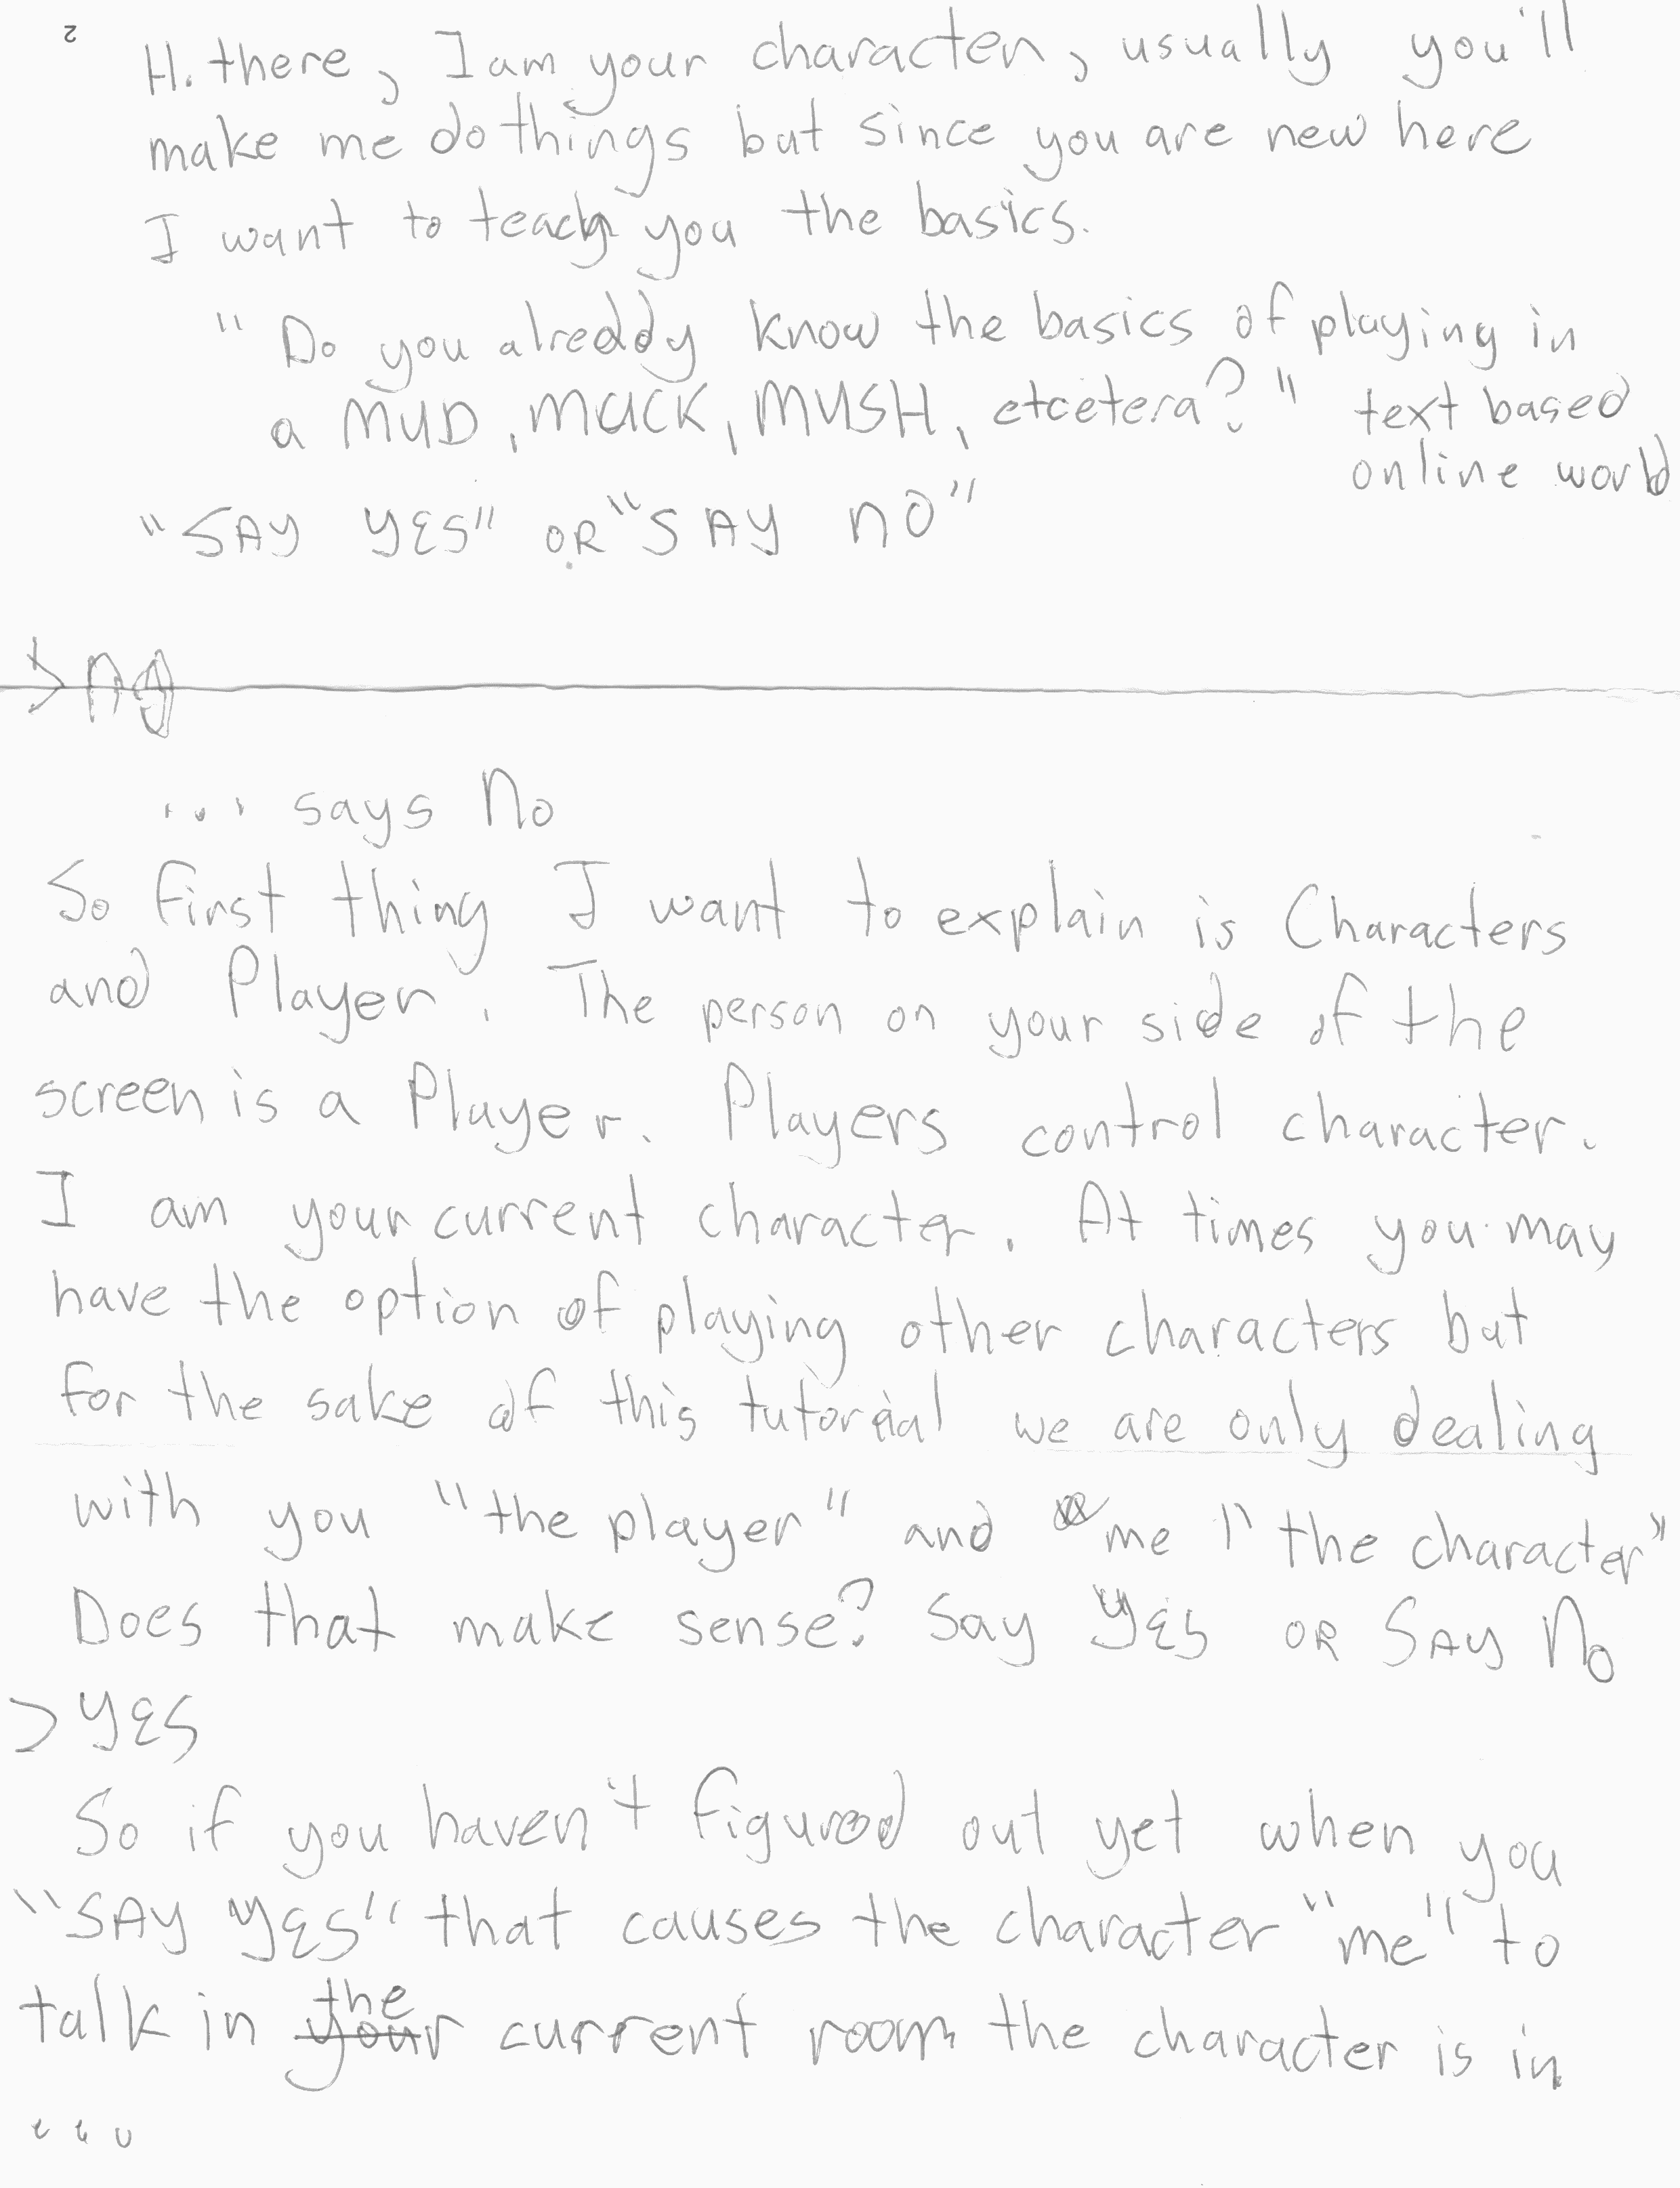 2
Hi there, I am your character, usually you'll
make me do things but since you are new here
I want to teach you the basics.
"Do you alreddy know the basics of playing in
a MUD, MUCK, MUSH, etcetera?" text based
online world
"SAY YES" OR "SAY NO"
> NO
... says No
So first thing I want to explain is Characters
and Player. The person on your side of the
screen is a Player. Players control character.
I am your current character. At times you may
have the option of playing other characters but
for the sake of this tutorial we are only dealing
with you "the player" and me "the character"
Does that make sense? Say YES OR SAY NO
> YES
So if you haven't figured out yet when you
"SAY YES" that causes the character "me" to
talk in your the current room the character is in
...